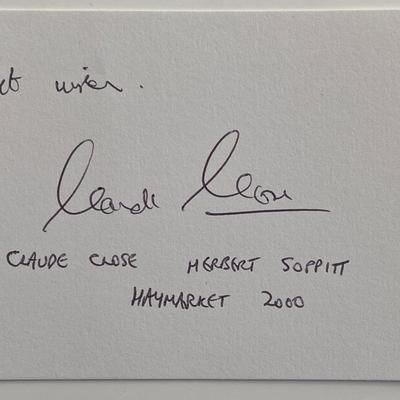 wishes.
Claude Close
CLAUDE CLOSE HERBERT SOPPITT
HAYMARKET 2000